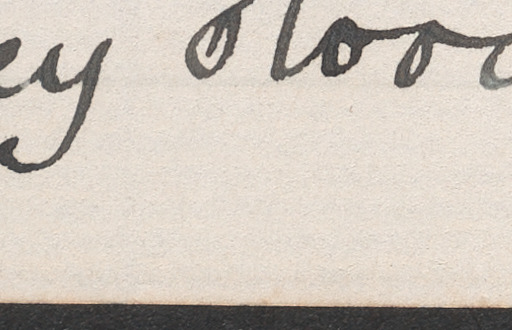 ey stood